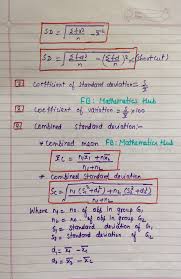 SD = √Σfx²/n - x̄²
SD = √Σfd²/n - (Σfd/n)² (shortcut)
Coefficient of standard deviation = S/x̄
FB: Mathematics Hub
Coefficient of variation = S/x̄ × 100
Combined Standard deviation:-
* Combined mean FB: Mathematics Hub
x̄c = n₁x̄₁ + n₂x̄₂ / n₁ + n₂
* Combined Standard deviation
Sc = √n₁(S₁²+d₁²) + n₂(S₂²+d₂²) / n₁ + n₂
Where n₁ = no. of obs in group G₁
n₂ = no. of obs in G₂
S₁ = Standard deviation of G₁
S₂ = Standard deviation of G₂
d₁ = x̄₁ - x̄c
d₂ = x̄₂ - x̄c